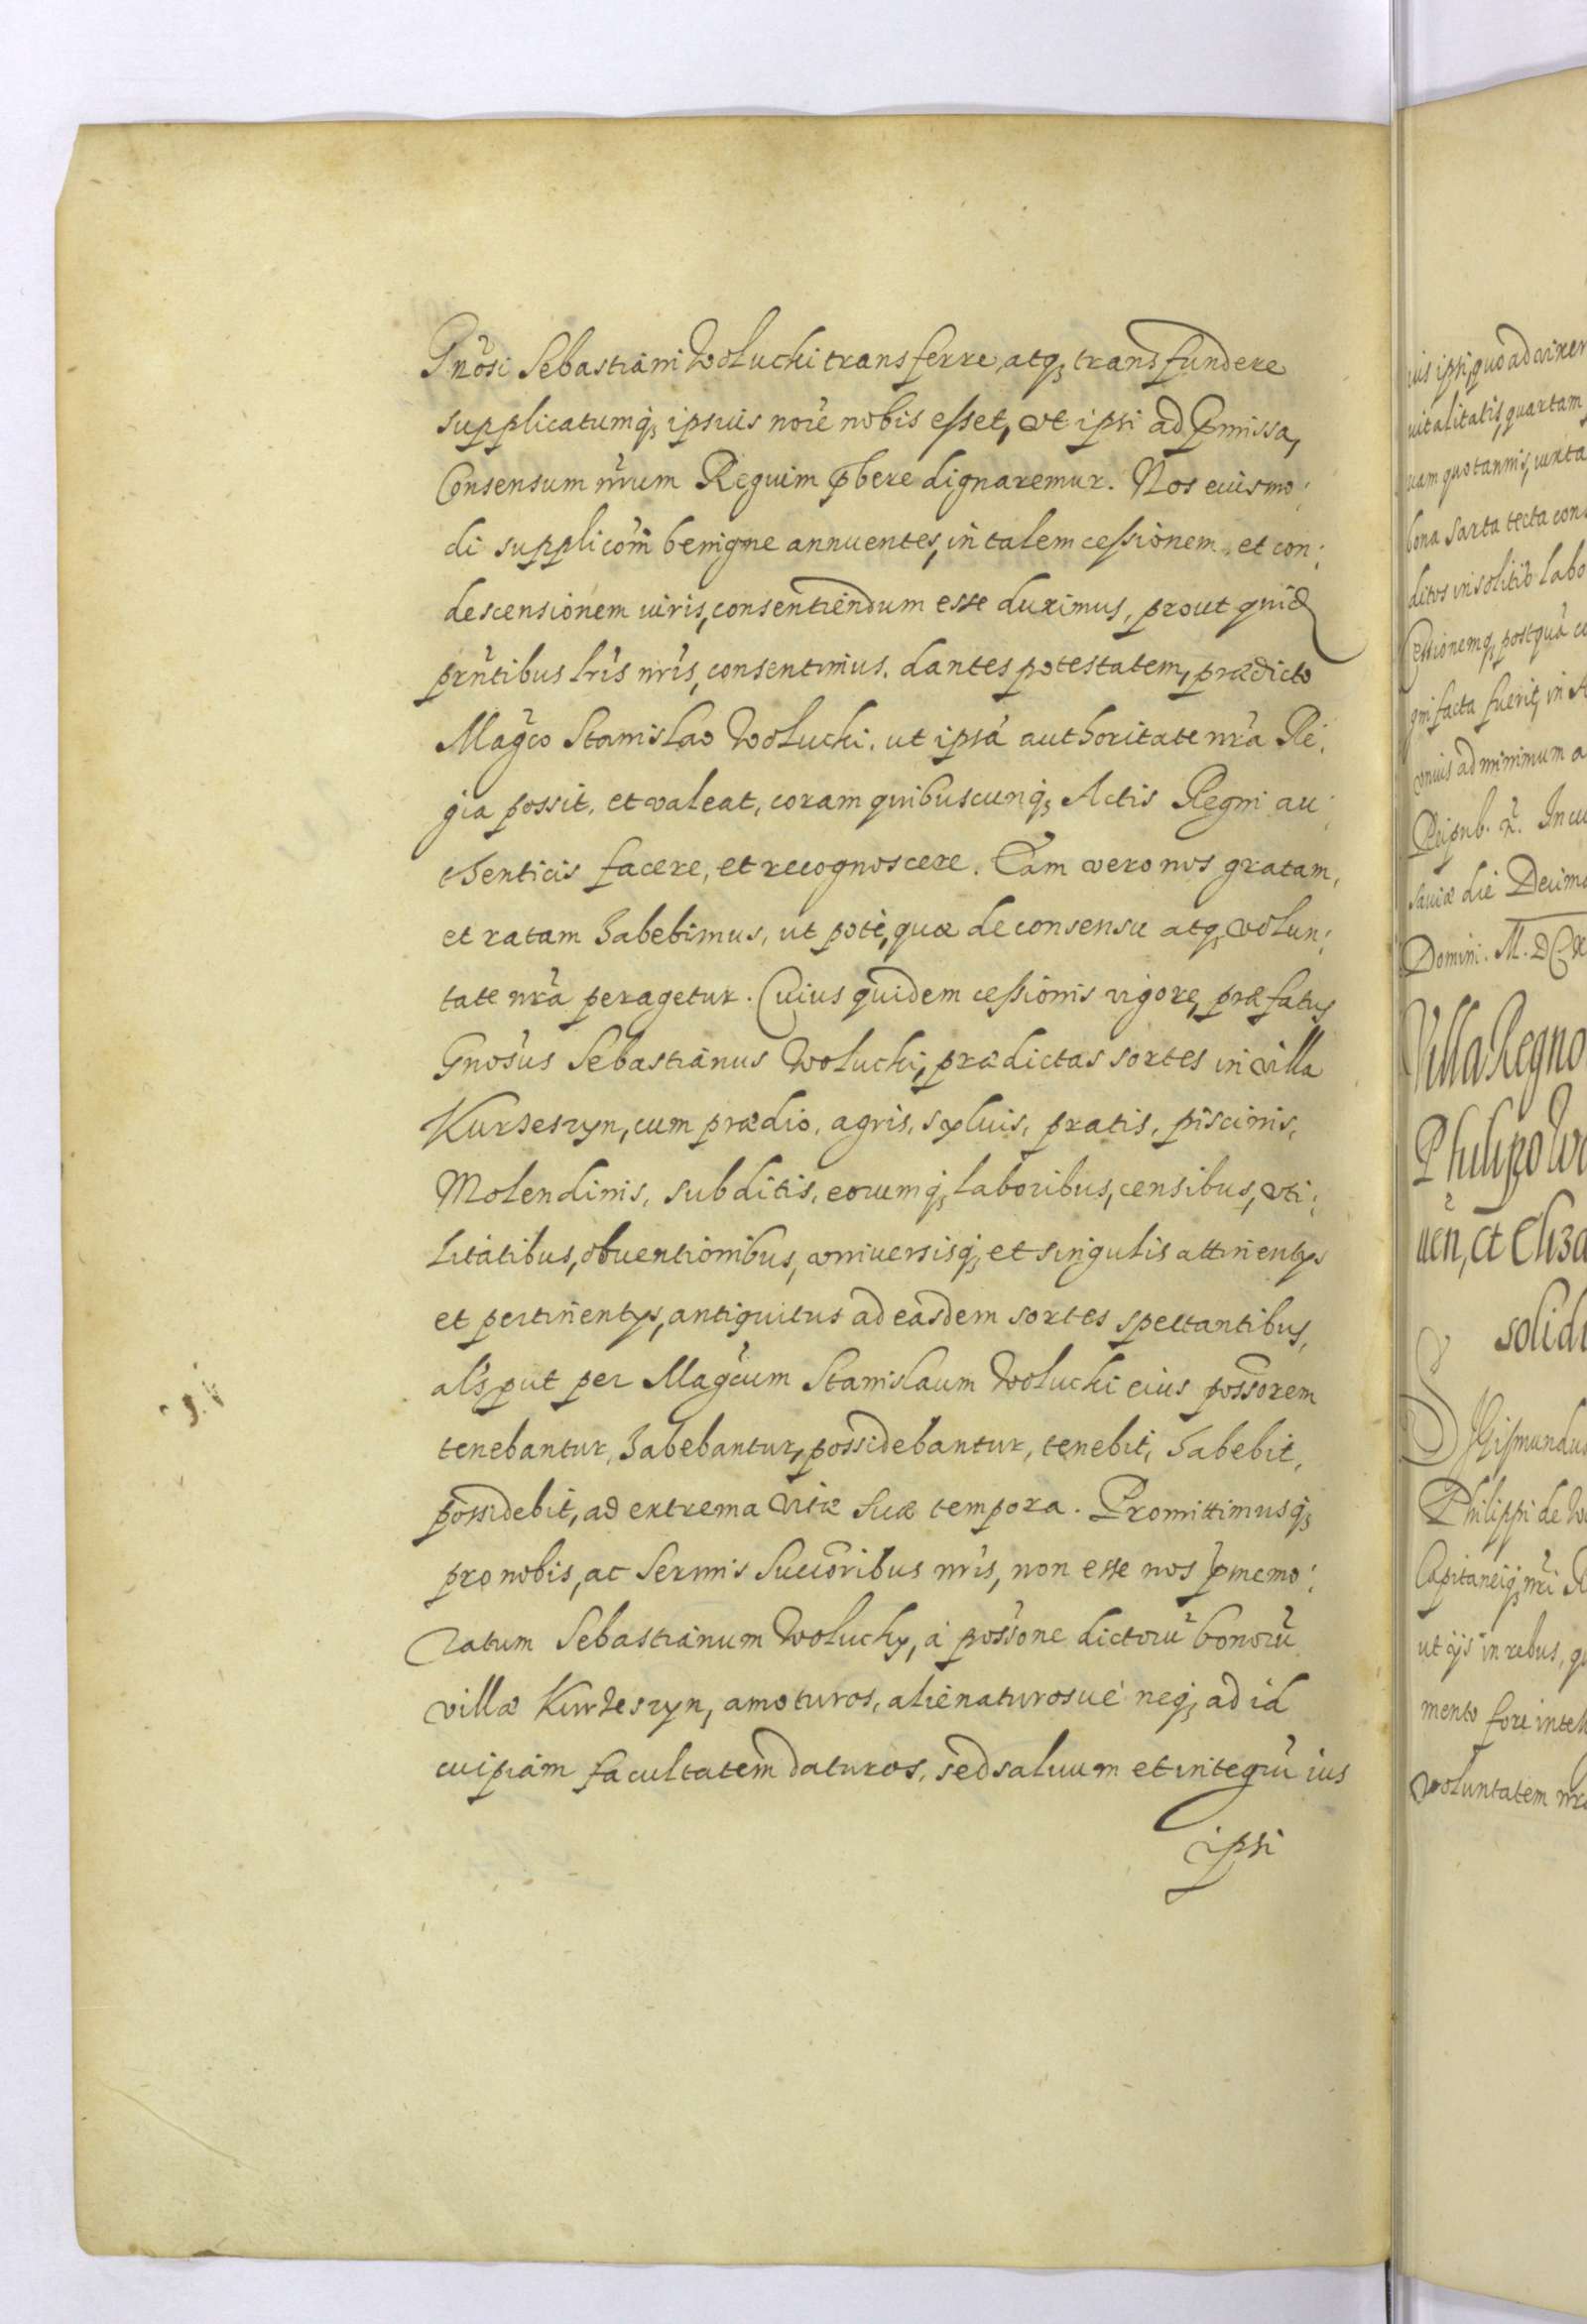 Gnosi Sebastiani Wolucki transferre, atq; transfundere
supplicatumq; ipsius noie nobis esset, vt ipsi ad pmissa,
Consensum nrum Regium pbere dignaremur. Nos eiusmo:
di supplicom benigne annuentes, in talem cessionem, et con:
descensionem iuris, consentiendum esse duximus, prout quid
prntibus lris nris, consentimus. dantes potestatem, prædicto
Magco Stanislao Wolucki. ut ipsa authoritate nra Re:
gia possit, et valeat, coram quibuscunq; Actis Regni au:
thenticis facere, et recognoscere. Eam vero nos gratam,
et ratam habebimus, ut pote, quæ de consensu atq; volun:
tate nra peragetur. Cuius quidem cessionis vigore, præfatus
Gnosus Sebastianus Wolucki, prædictas sortes in villa
Kurzeszyn, cum prædio, agris, syluis, pratis, piscinis,
Molendinis, subditis, eorumq; laboribus, censibus, vti:
litatibus, obuentionibus, vniuersisq; et singulis attinentys
et pertinentys, antiquitus ad easdem sortes spectantibus,
als put per Magcum Stanislaum Wolucki eius possorem
tenebantur, habebantur, possidebantur, tenebit, habebit,
possidebit, ad extrema vitæ suæ tempora. Promittimusq;
pro nobis, ac Sermis Succoribus nris, non esse nos pmemo:
ratum Sebastianum Wolucky, a possone dictoru bonoru
villæ Kurzeszyn, amoturos, alienaturosue neq; ad id
cuipiam facultatem daturos, sed saluum et integru ius
ipsi
ius ipsi, quoad vixer
vitalitatis, quartam
uam quotannis, iuxta
bona sarta tecta con
ditos insolitis labo
Cessionemq; postqua co
gni facta fuerit, in A
vnius ad minimum a
Reipub. n. In cu
sauiæ die Decima
Domini. M.DCX
Villa Regno
Philippo Wo
uen, et Eliza
solidi
Sigismundus
Philippi de W
Capitaneiq; nri R
ut ijs in rebus, qu
mento fore intell
voluntatem nra